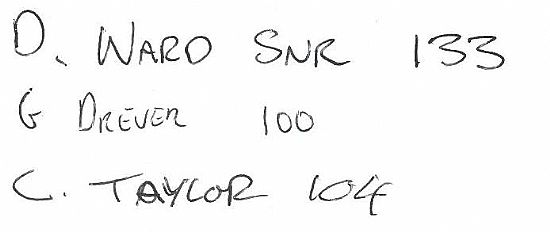 D. WARD SNR 133
G DREVER 100
C. TAYLOR 104